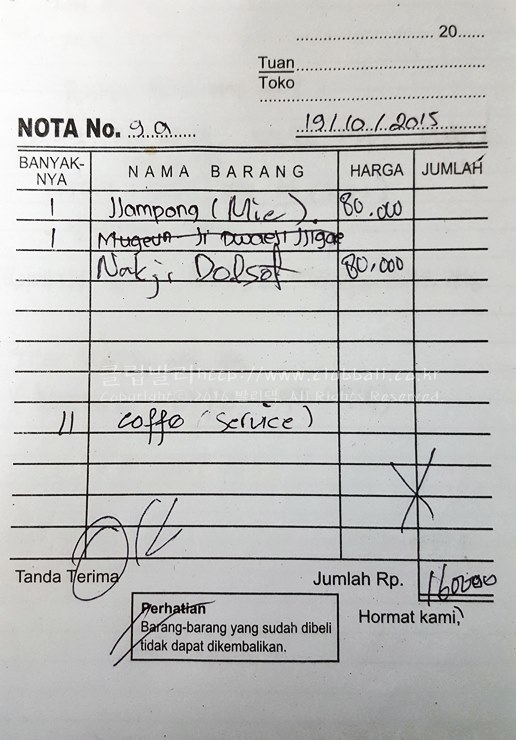 20......
Tuan
Toko
NOTA No. 9a
19/10/2015
BANYAK-NYA NAMA BARANG HARGA JUMLAH
1 JJampong (Mie). 80.000
1 Mugeun Ji Dwaeji JJigae
Nakji Dolsot 80.000
클럽발리 http://www.clubbali.co.kr
All Rights Reserved
11 coffe (service)
Tanda Terima Jumlah Rp. 160000
Perhatian
Barang-barang yang sudah dibeli
tidak dapat dikembalikan.
Hormat kami,